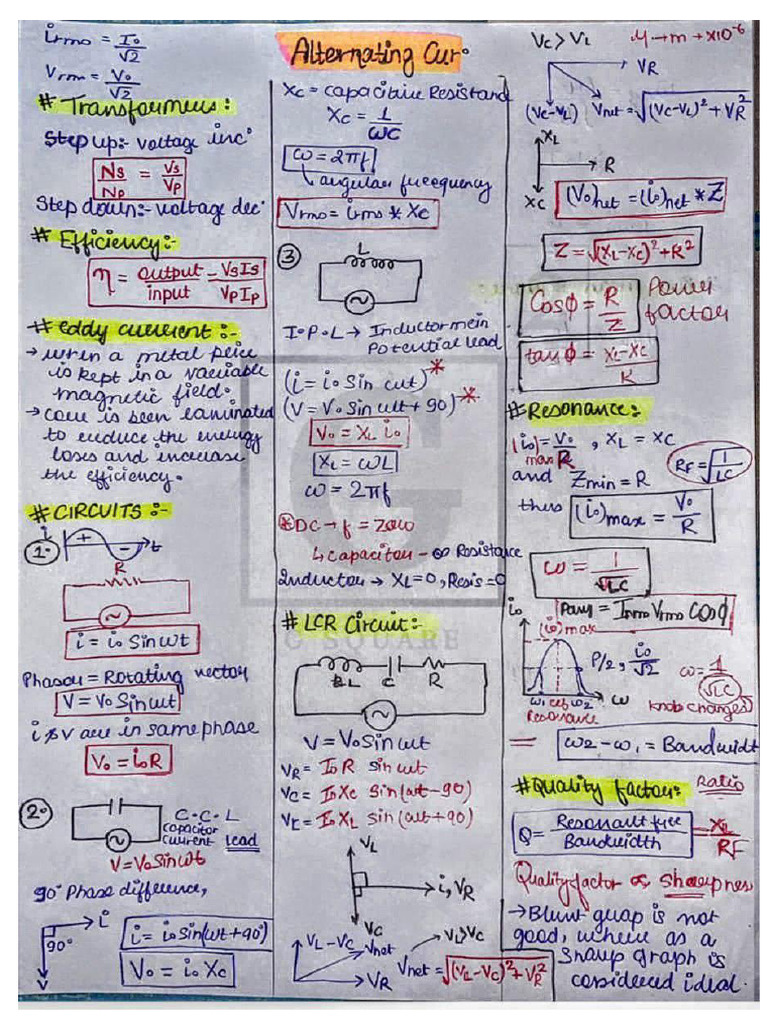 irms = I₀/√2
Vrms = V₀/√2
# Transformers:
Step up:- voltage inc°
Ns/Np = Vs/Vp
Step down:- voltage dec°
# Efficiency:-
η = output/input = VsIs/VpIp
# eddy current :-
→ when a metal peice
is kept in a variable
magnetic field.
→ core is been laminated
to reduce the energy
loses and increase
the efficiency.
# CIRCUITS :-
1.
i + - t
R
i = i₀ Sin ωt
Phasor = Rotating vector
V = V₀ Sin ωt
i & v are in same phase
V₀ = i₀R
2.
C.C.L
capacitor
current lead
V = V₀ Sin ωt
90° Phase difference,
i
90°
V
i = i₀ sin(ωt + 90°)
V₀ = i₀ Xc
Alternating Cur.
Xc = capacitive Resistand
Xc = 1/ωC
ω = 2πf
angular freequency
Vrms = irms * Xc
3
L
I.P.L → Inductor mein
Potential lead
(i = i₀ Sin ωt)*
(V = V₀ Sin ωt + 90)*
V₀ = XL i₀
XL = ωL
ω = 2πf
*DC → f = zero
↳ capacitor - ∞ Resistance
Inductor → XL = 0, Resis = 0
# LCR Circuit:-
G SQUARE
L C R
V = V₀ Sin ωt
VR = I₀ R sin ωt
Vc = I₀ Xc Sin(ωt - 90)
VL = I₀ XL sin(ωt + 90)
VL
i, VR
VC
VL - VC Vnet
VL > VC
VR
Vnet = √(VL - VC)² + VR²
Vc > VL
μ → m → x10⁻⁶
VR
(Vc - VL) Vnet = √(Vc - VL)² + VR²
XL
R
XC
(V₀)net = (i₀)net * Z
Z = √(XL - XC)² + R²
Cosφ = R/Z
Power
factor
tan φ = XL - XC/R
# Resonance:
(i₀)max = V₀/R , XL = XC
and Zmin = R
RF = √1/LC
thus (i₀)max = V₀/R
ω = 1/√LC
Pavg = Irms Vrms Cosφ
i₀
(i₀)max
P/2, i₀/√2
ω = 1/√LC
ω₁ ω₂ ω
Resonance
knob changed
= ω₂ - ω₁ = Bandwidt
# Quality factor: Ratio
Q = Resonant free/Bandwidth = XL/RF
Quality factor ∝ sharpnes
→ Blunt grap is not
good, where as a
Sharp graph is
considered ideal.